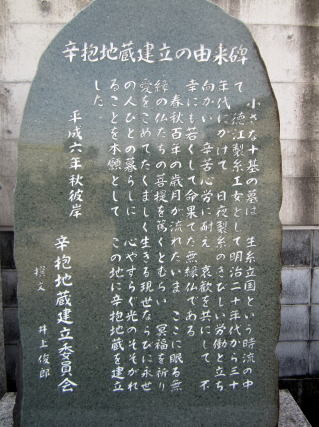 辛抱地蔵建立の由来碑
小さな十基の墓は 生糸立国という時流の中
で 徳江製糸工女として明治二十年代から三十
年代にかけて 日夜製糸のきびしい労働と立ち
向かい 辛苦心労に耐え 哀歓を共にして 不
幸にも若くして命果てた無縁仏である
春秋百年の歳月が流れたいま ここに眠る無
縁の仏たちの菩提を篤くとむらい 冥福を祈り
愛をこめてたくましく生きる現世ならびに永世
の人びとの暮らしに 心やすらぐ光のそそがれ
ることを本願として この地に辛抱地蔵を建立
した
平成六年秋彼岸
辛抱地蔵建立委員会
撰文 井上俊郎